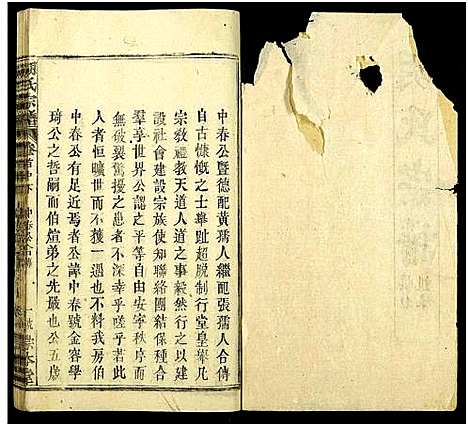 中春公暨德配黃孺人繼配張孺人合傳
自古慷慨之士舉趾超脫制行堂皇舉凡
宗教禮教天道人道之事毅然行之以建
設社會建設宗族使知聯絡團結保種合
羣乎世界公認之平等自由安寧秩序而
無破裂驚擾之患者不深幸乎嗟乎若此
人者恒曠世而不獲一遇也不料我房伯
中春公有足近焉者公諱中春號金容學
琦公之哲嗣而伯煊弟之先嚴也公五歲
氏宗譜
卷首中下
中春公合傳